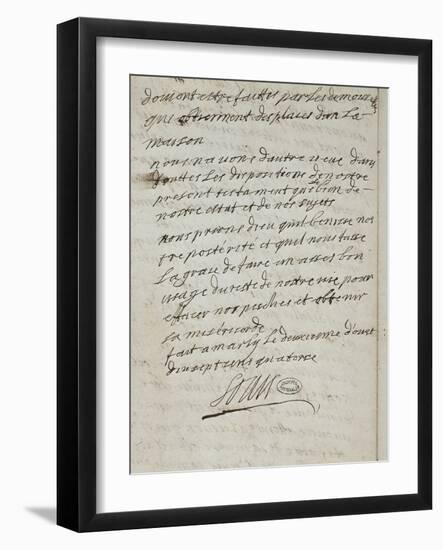 doivent estre faittes par les demoiselles
qui obtiennent des places dans la
maison
nous navons dautre veue dans
touttes les dispositions de nostre
present testament que le bien de
nostre estat et de nos sujets
nous prions dieu quil benisse nos
tre postérité et quil nous fasse
la grace de faire un asses bon
usage du reste de nostre vie pour
effacer nos peches et obtenir
sa miséricorde
fait a marly le deuxiesme d'oust
dix sept cens quatorse
Louis